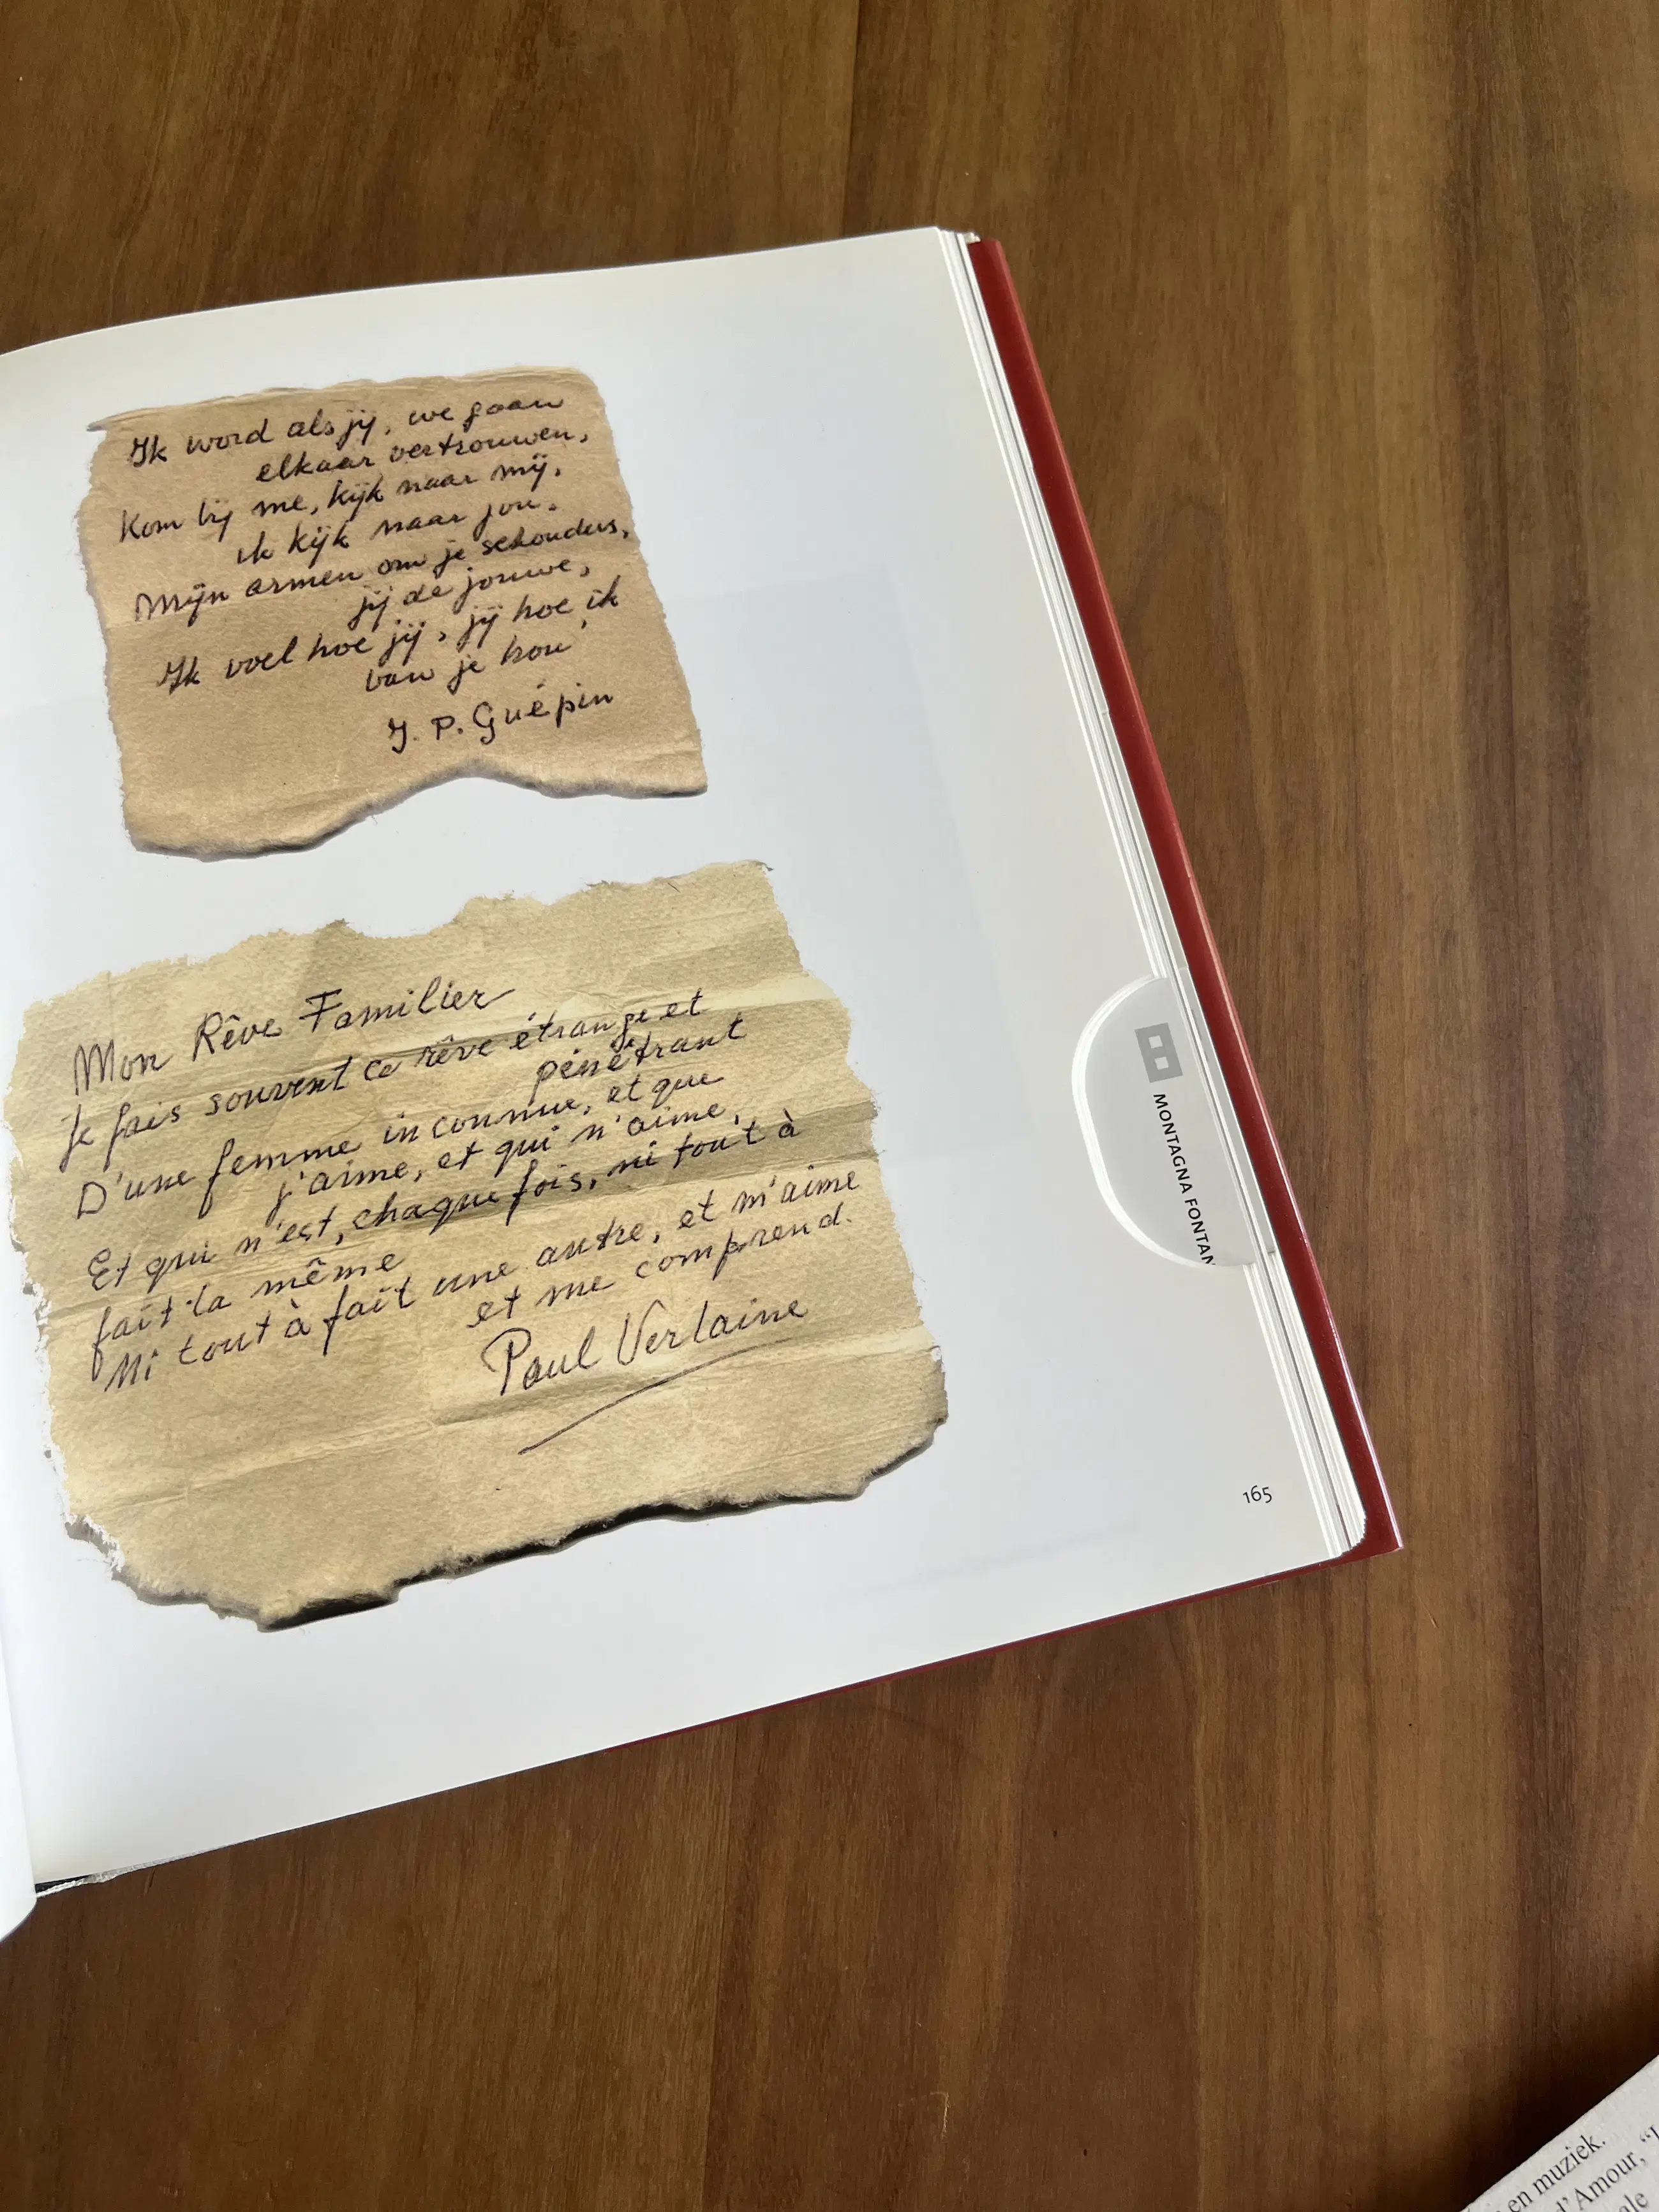 Ik word als jij, we gaan
elkaar vertrouwen,
Kom bij me, kijk naar mij,
ik kijk naar jou,
Mijn armen om je schouders,
jij de jouwe,
Ik voel hoe jij, jij hoe ik
van je hou
J. P. Guépin
Mon Rêve Familier
Je fais souvent ce rêve étrange et
pénétrant
D'une femme inconnue, et que
j'aime, et qui n'aime,
Et qui n'est, chaque fois, ni tout à
fait la même
Ni tout à fait une autre, et m'aime
et me comprend.
Paul Verlaine
MONTAGNA FONTAN
165
en muziek.
d'Amour,